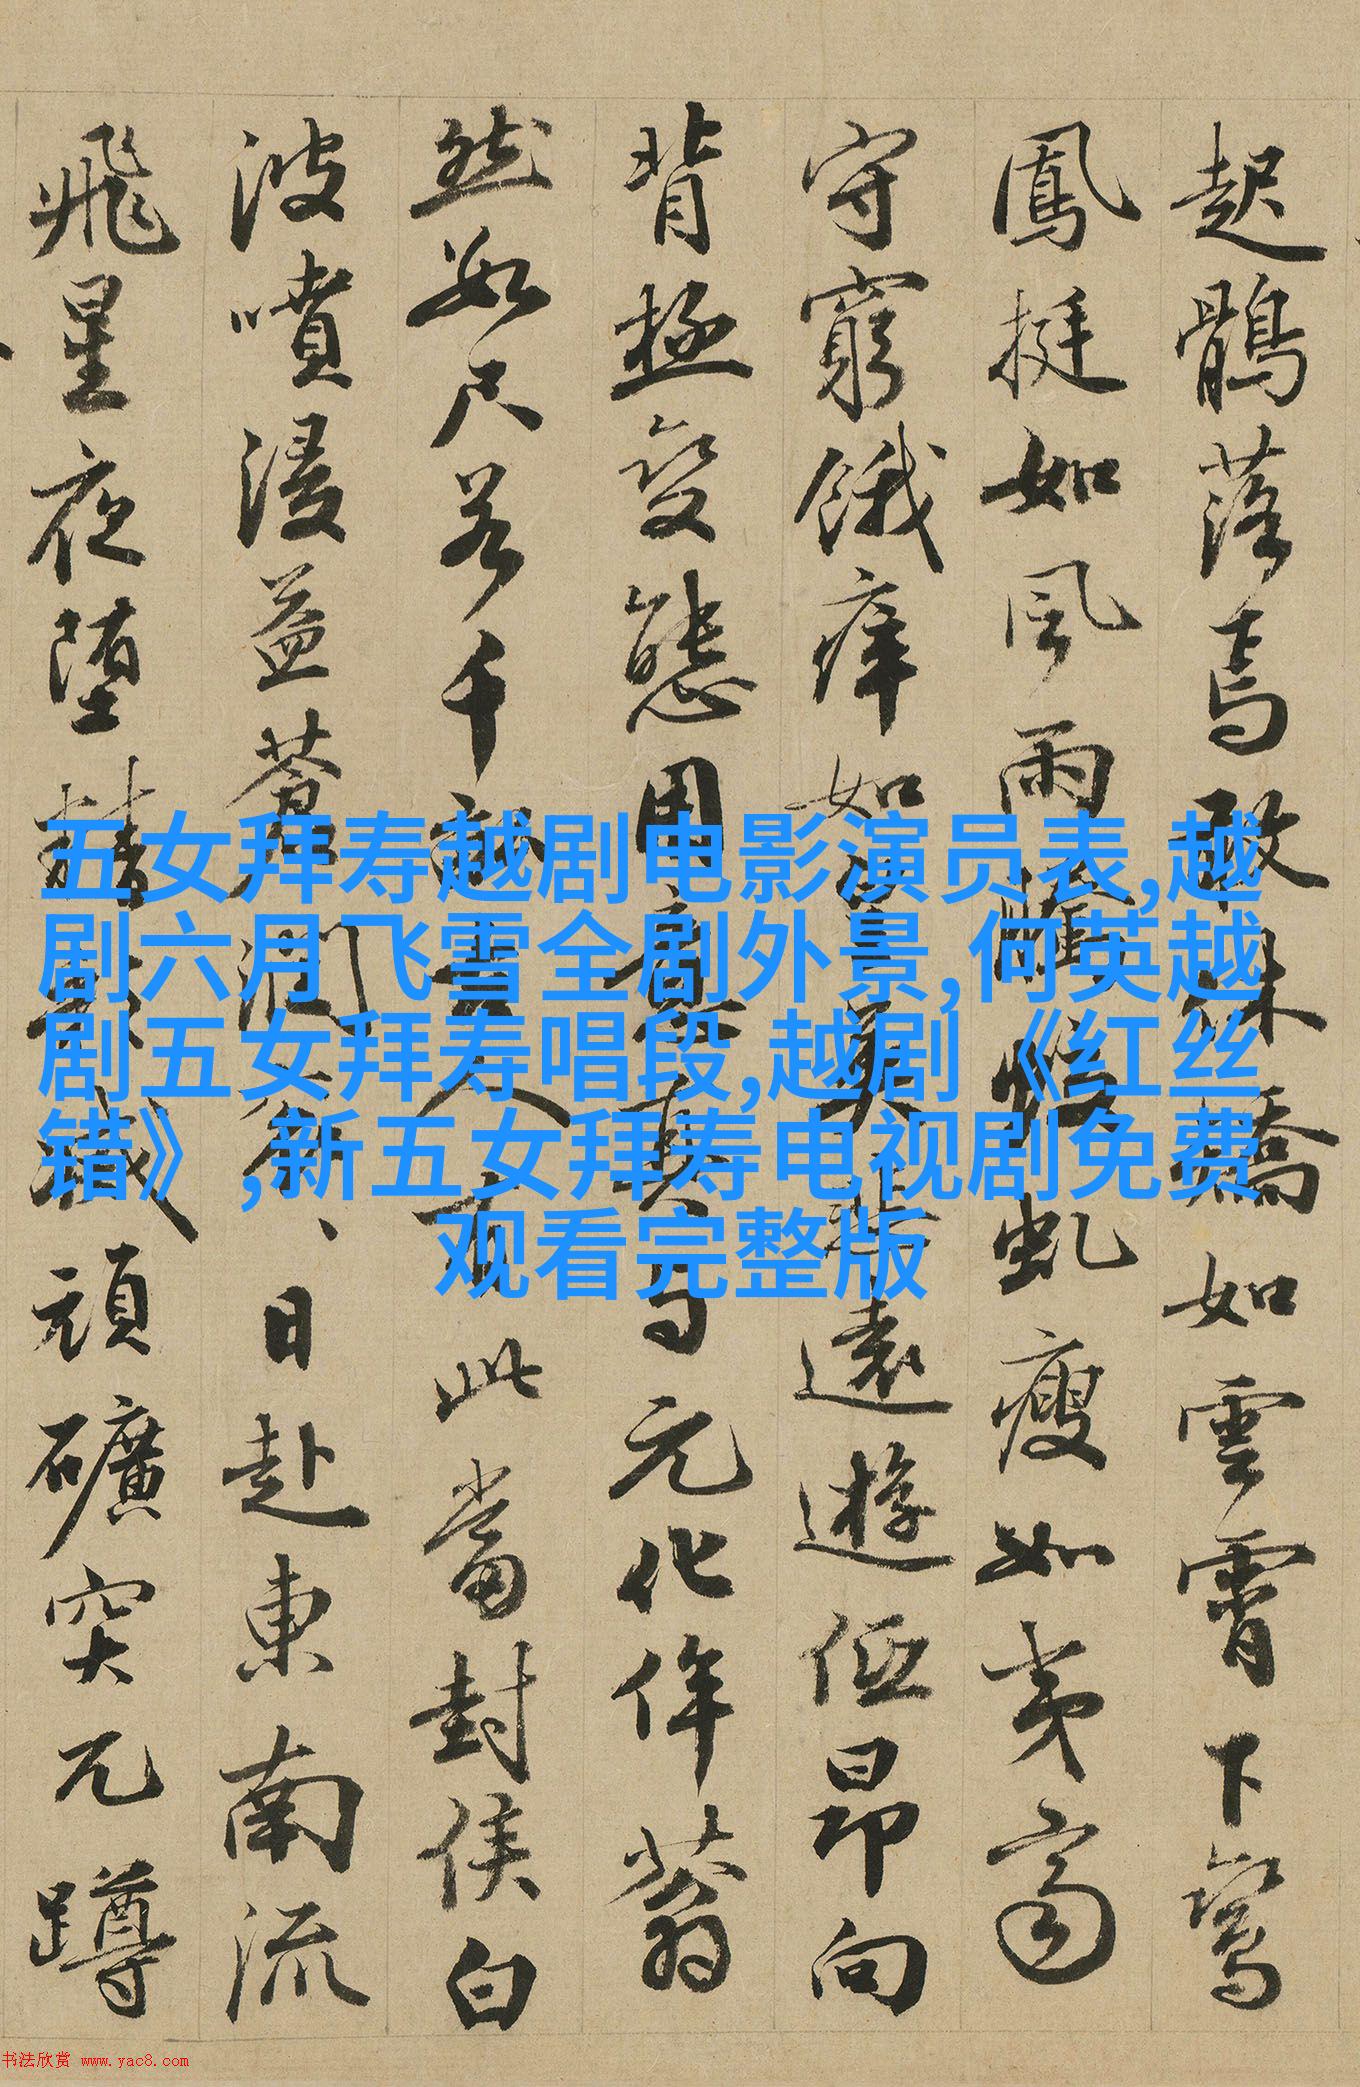 五女拜寿越剧电影演员表,越
剧六月飞雪全剧外景,何英越
剧五女拜寿唱段,越剧《红丝
错》,新五女拜寿电视剧免费
观看完整版
起鶻落焉敢如雲霄下鸞
鳳挺如風雨虬瘦如夷齊
守窮餓痒如遠遊低昂向
背極變態用意与元化侔蒼
然數尺若千人有此當封侯白
波噴浸益薈潤日赴東南流
飛星夜墮精頑礦突兀蹲
书法欣赏 www.yac8.com